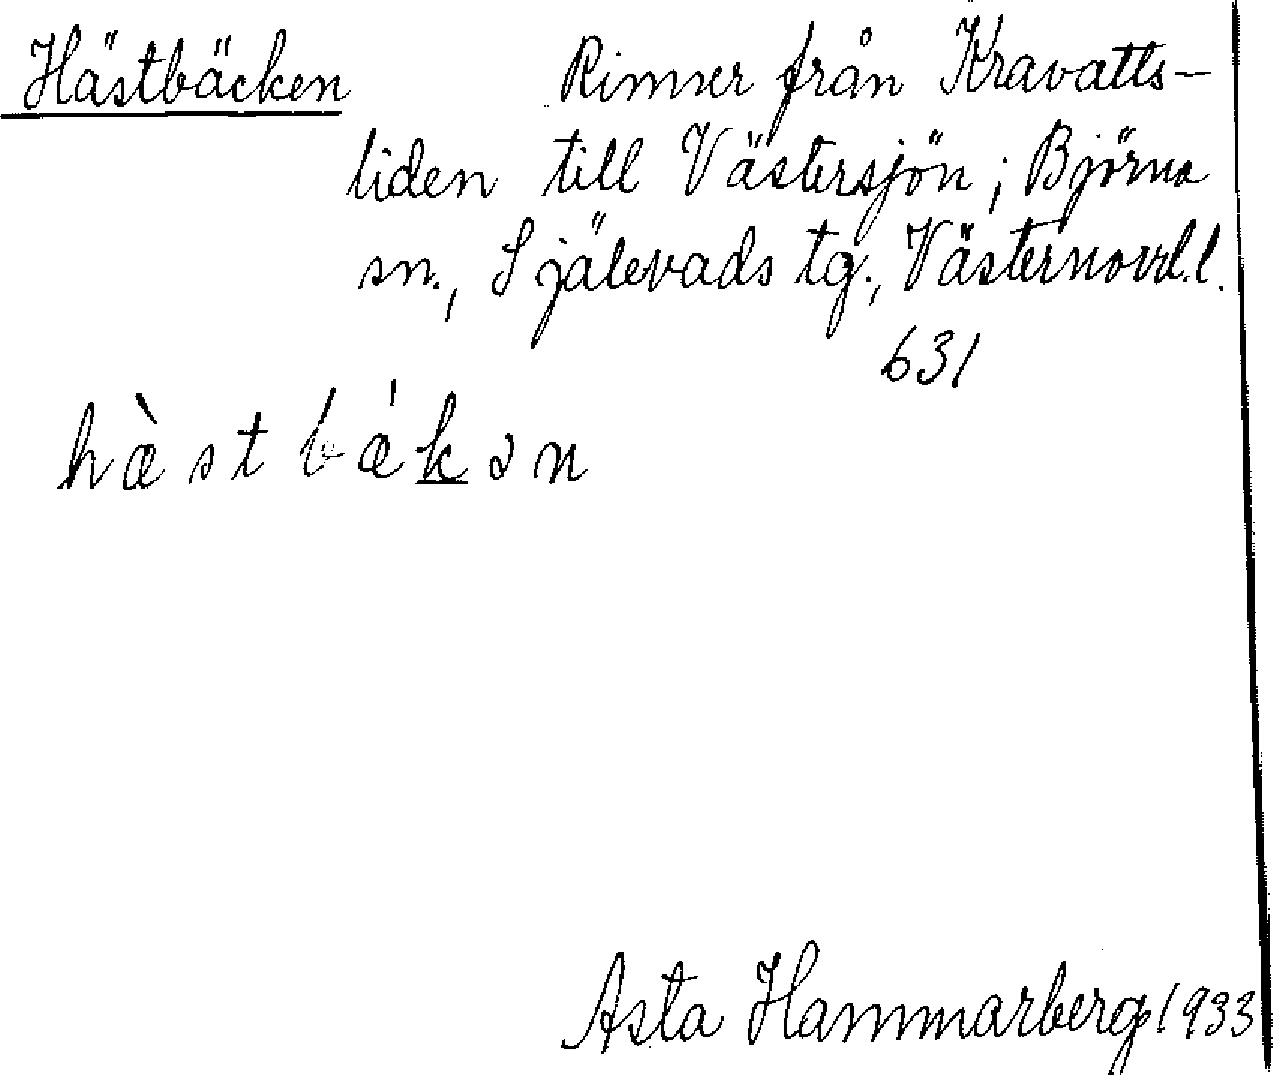 Hästbäcken Rinner från Kravatts-
liden till Västersjön; Björna
sn., Själevads tg., Västernorrl.l.
631
hæ̀stbǽk̲ən
Asta Hammarberg 1933